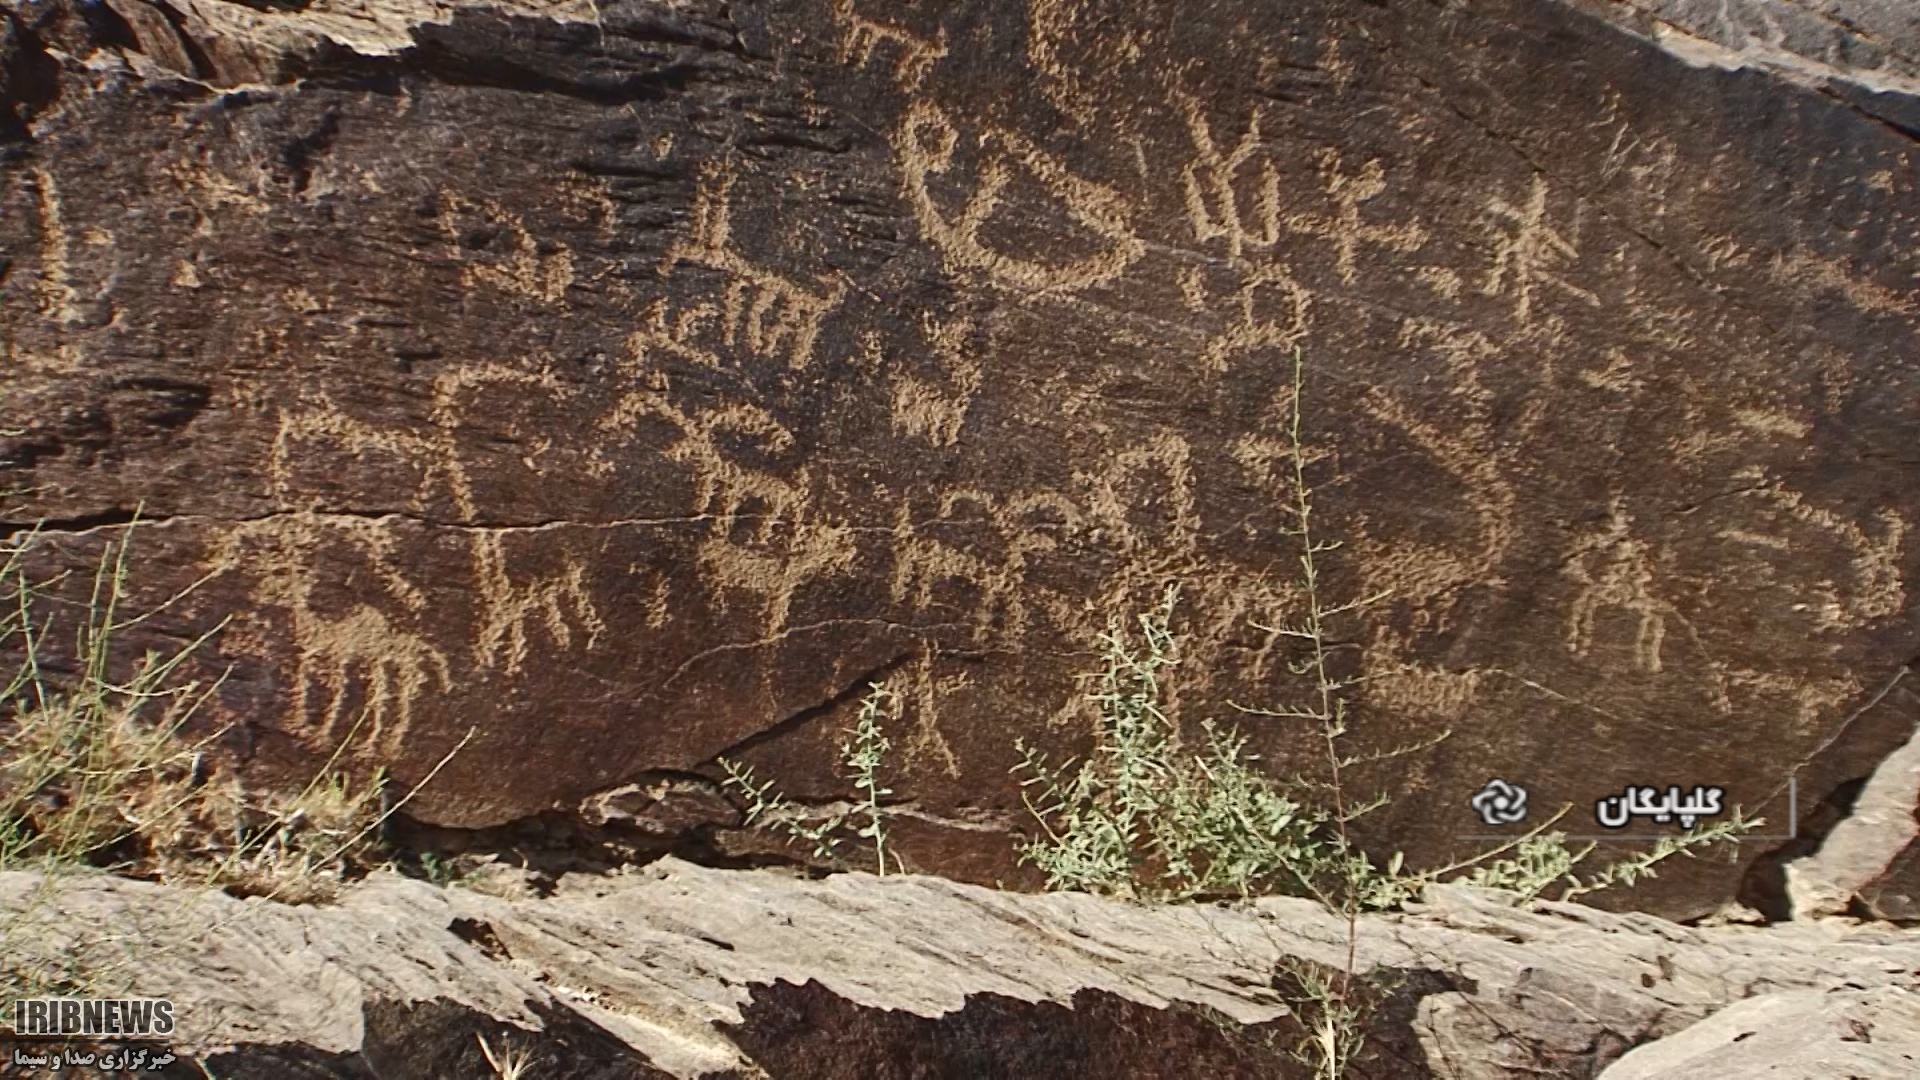 گلپایگان
IRIBNEWS
خبرگزاری صدا و سیما